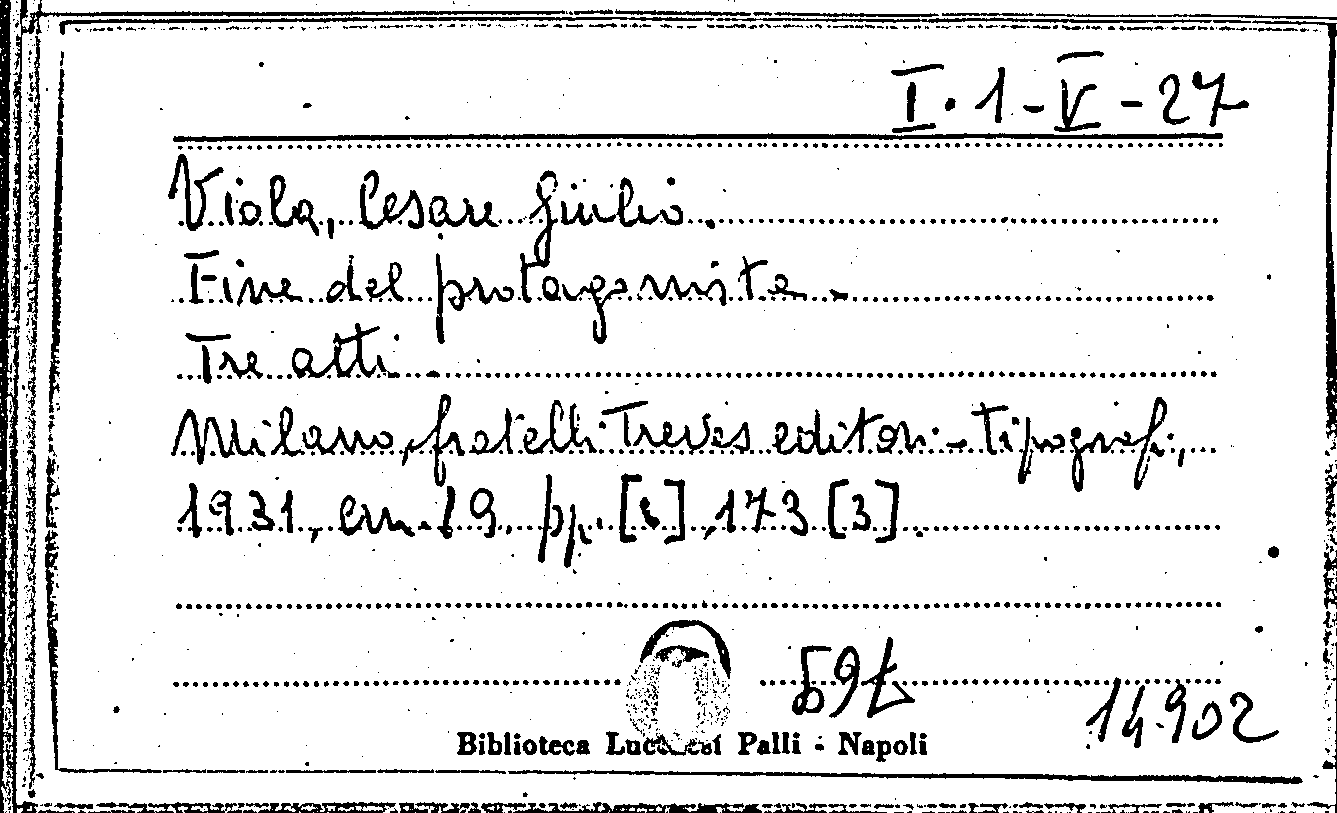 I. 1 - V - 27
Viola, Cesare Giulio.
Fine del protagonista.
Tre atti.
Milano, fratelli Treves editori - tipografi,
1931, cm. 19. pp. [8], 173 [3].
14.902
Biblioteca Lucchesi Palli - Napoli